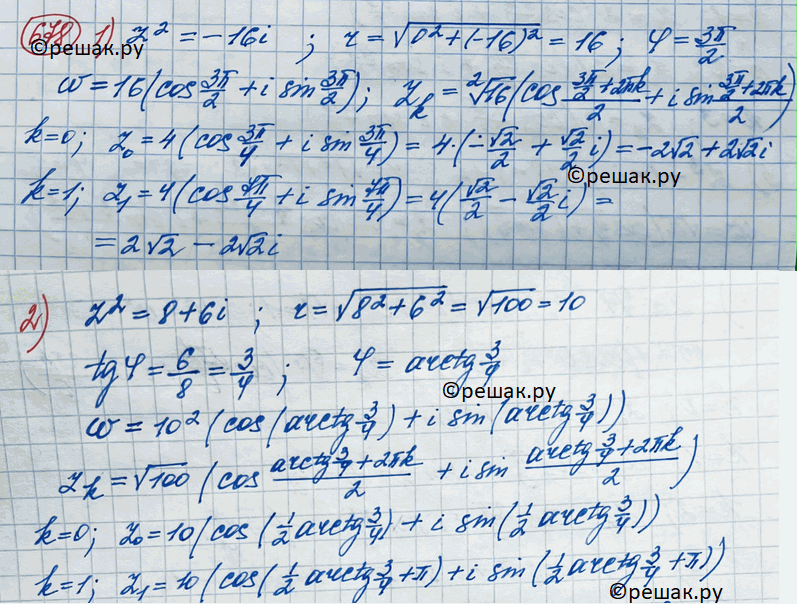 678 1) z² = -16i ; r = √(0² + (-16)²) = 16 ; φ = 3π/2
©решак.ру
ω = 16(cos 3π/2 + i sin 3π/2); z_k = ²√16 (cos (3π/2 + 2πk)/2 + i sin (3π/2 + 2πk)/2)
k=0; z₀ = 4(cos 3π/4 + i sin 3π/4) = 4·(-√2/2 + √2/2 i) = -2√2 + 2√2i
©решак.ру
k=1; z₁ = 4(cos 7π/4 + i sin 7π/4) = 4(√2/2 - √2/2 i) =
= 2√2 - 2√2i
2) z² = 8+6i ; r = √(8² + 6²) = √100 = 10
tg φ = 6/8 = 3/4 ; φ = arctg 3/4
©решак.ру
ω = 10² (cos(arctg 3/4) + i sin(arctg 3/4))
z_k = √100 (cos (arctg 3/4 + 2πk)/2 + i sin (arctg 3/4 + 2πk)/2)
k=0; z₀ = 10(cos(1/2 arctg 3/4) + i sin(1/2 arctg 3/4))
k=1; z₁ = 10(cos(1/2 arctg 3/4 + π) + i sin(1/2 arctg 3/4 + π))
©решак.ру